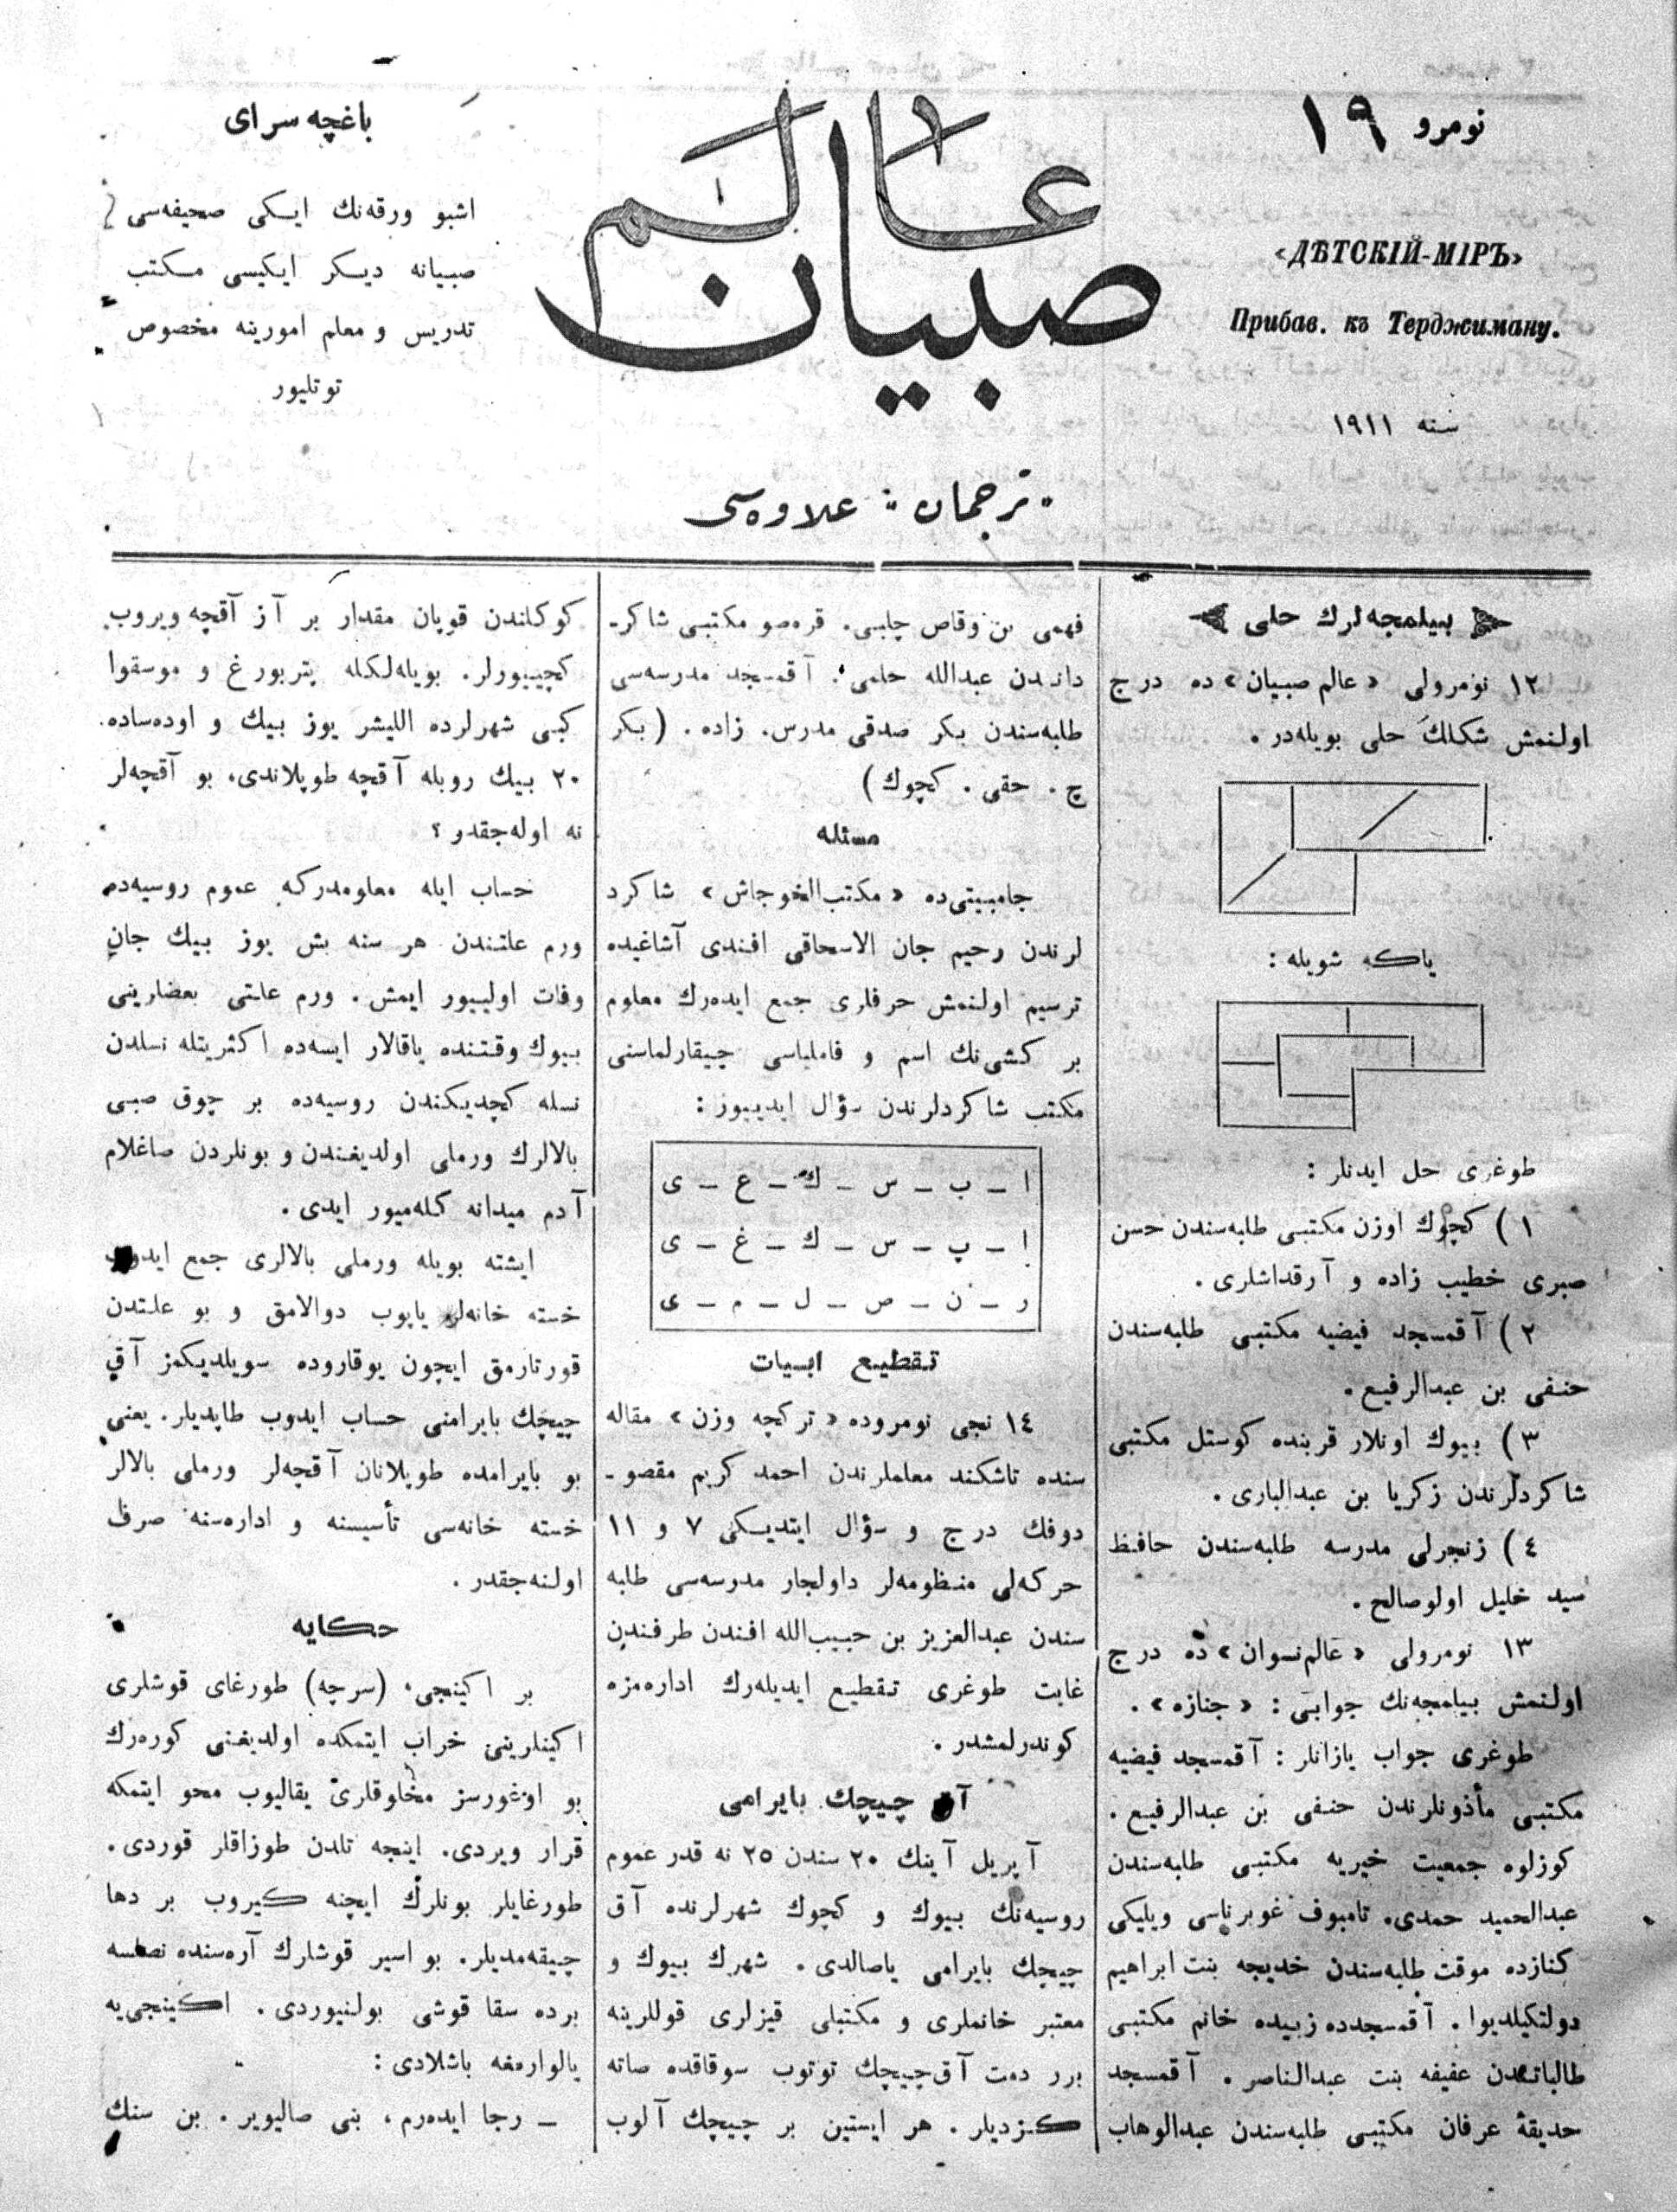 نومرو ١٩
«ДѢТСКІЙ-МІРЪ»
Прибав. къ Терджиману.
سنه ١٩١١
عالم
صبيان
ترجمان : علاوه‌سی
باغچه سرای
اشبو ورقه‌نك ایکی صحیفه‌سی
صبیانه دیکر ایکیسی مکتب
تدریس و معلم امورینه مخصوص
توتلیور
بیلمجه‌لرك حلی
١٢ نومرولی «عالم صبیان» ده درج
اولنمش شکلك حلی بویله‌در .
یاکه شویله :
طوغری حل ایدنلر :
١) کچوك اوزن مکتبی طلبه‌سندن حسن
صبری خطیب زاده و آرقداشلری .
٢) آقمسجد فیضیه مکتبی طلبه‌سندن
حنفی بن عبدالرفیع .
٣) بیوك اونلار قربنده کوستل مکتبی
شاکردلرندن زکریا بن عبدالباری .
٤) زنجرلی مدرسه طلبه‌سندن حافظ
سید خلیل اولوصالح .
١٣ نومرولی «عالم‌نسوان» ده درج
اولنمش بیلمجه‌نك جوابی : «جنازه» .
طوغری جواب یازانلر : آقمسجد فیضیه
مکتبی مأذونلرندن حنفی بن عبدالرفیع .
کوزلوه جمعیت خیریه مکتبی طلبه‌سندن
عبدالحمید حمدی. تامبوف غوبرناسی ویلیکی
کنازده موقت طلبه‌سندن خدیجه بنت ابراهیم
دولتکیلدیوا . آقمسجدده زبیده خانم مکتبی
طالباتندن عفیفه بنت عبدالناصر . آقمسجد
حدیقهٔ عرفان مکتبی طلبه‌سندن عبدالوهاب
فهمی بن وقاص چلبی. قره‌صو مکتبی شاکر-
داندن عبدالله حلمی. آقمسجد مدرسه‌سی
طلبه‌سندن بکر صدقی مدرس. زاده . (بکر
چ . حقی . کچوك)
مسئله
جامبیتی‌ده «مکتب‌الخوجاش» شاکرد
لرندن رحیم جان الاسحاقی افندی آشاغیده
ترسیم اولنمش حرفلری جمع ایده‌رك معلوم
بر کشی‌نك اسم و فاملیاسی چیقارلماسنی
مکتب شاکردلرندن سؤال ایدییوز :
ا - ب - س - ك - ع - ی
ا - پ - س - ك - غ - ی
ر - ن - ص - ل - م - ی
تقطیع ابیات
١٤ نجی نومروده «ترکچه وزن» مقاله
سنده تاشکند معلملرندن احمد کریم مقصو-
دوفك درج و سؤال ایتدیکی ٧ و ١١
حرکه‌لی منظومه‌لر داولجار مدرسه‌سی طلبه
سندن عبدالعزیز بن حبیب‌الله افندن طرفندن
غایت طوغری تقطیع ایدیله‌رك اداره‌مزه
کوندرلمشدر .
آق چیچك بایرامی
آپریل آینك ٢٠ سندن ٢٥ نه قدر عموم
روسیه‌نك بیوك و کچوك شهرلرنده آق
چیچك بایرامی یاصالدی . شهرك بیوك و
معتبر خانملری و مکتبلی قیزلری قوللرینه
برر دمت آق‌چیچك توتوب سوقاقده صاته
کزدیلر . هر ایستین بر چیچك آلوب
کوکلندن قوپان مقدار بر آز آقچه ویروب
کچییورلر. بویله‌لکله پتربورغ و موسقوا
کبی شهرلرده اللیشر یوز بیك و اوده‌ساده
٢٠ بیك روبله آقچه طوپلاندی. بو آقچه‌لر
نه اوله‌جقدر ؟
حساب ایله معلومدرکه عموم روسیه‌ده
ورم علتندن هر سنه بش یوز بیك جان
وفات اولییور ایمش . ورم علتی بعضارینی
بیوك وقتنده یاقالار ایسه‌ده اکثریتله نسلدن
نسله کچدیکندن روسیه‌ده بر چوق صبی
بالالرك ورملی اولدیغندن و بونلردن صاغلام
آدم میدانه کله‌میور ایدی .
ایشته بویله ورملی بالالری جمع ایدوب
خسته خانه‌لر یاپوب دوالامق و بو علتدن
قورتارمق ایچون یوقاروده سویلدیکمز آق
چیچك بایرامنی حساب ایدوب طاپدیلر. یعنی
بو بایرامده طوپلانان آقچه‌لر ورملی بالالر
خسته خانه‌سی تأسیسنه و اداره‌سنه صرف
اولنه‌جقدر .
حکایه
بر اکینجی (سرچه) طورغای قوشلری
اکینلرینی خراب ایتمکده اولدیغنی کوره‌رك
بو اوغورسز مخلوقلری یقالیوب محو ایتمکه
قرار ویردی. اینجه تلدن طوزاقلر قوردی.
طورغایلر بونلرك ایچنه کیروب بر دها
چیقه‌مدیلر. بو اسیر قوشلرك آره‌سنده نصلسه
برده سقا قوشی بولنیوردی . اکینجی‌یه
یالوارمغه باشلادی :
ـ رجا ایده‌رم ، بنی صالیویر . بن سنك